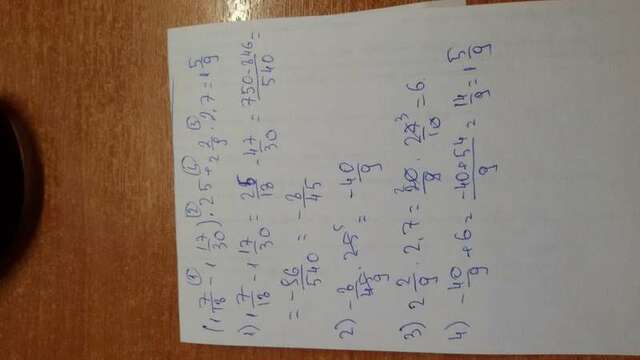 (1 7/18 - 1 17/30) · 25 + 2 2/9 · 2,7 = 1 5/9
1) 1 7/18 - 1 17/30 = 25/18 - 47/30 = 750-846/540 =
= -96/540 = -8/45
2) -8/45 · 25 = -40/9
3) 2 2/9 · 2,7 = 20/9 · 27/10 = 6
4) -40/9 + 6 = -40+54/9 = 14/9 = 1 5/9